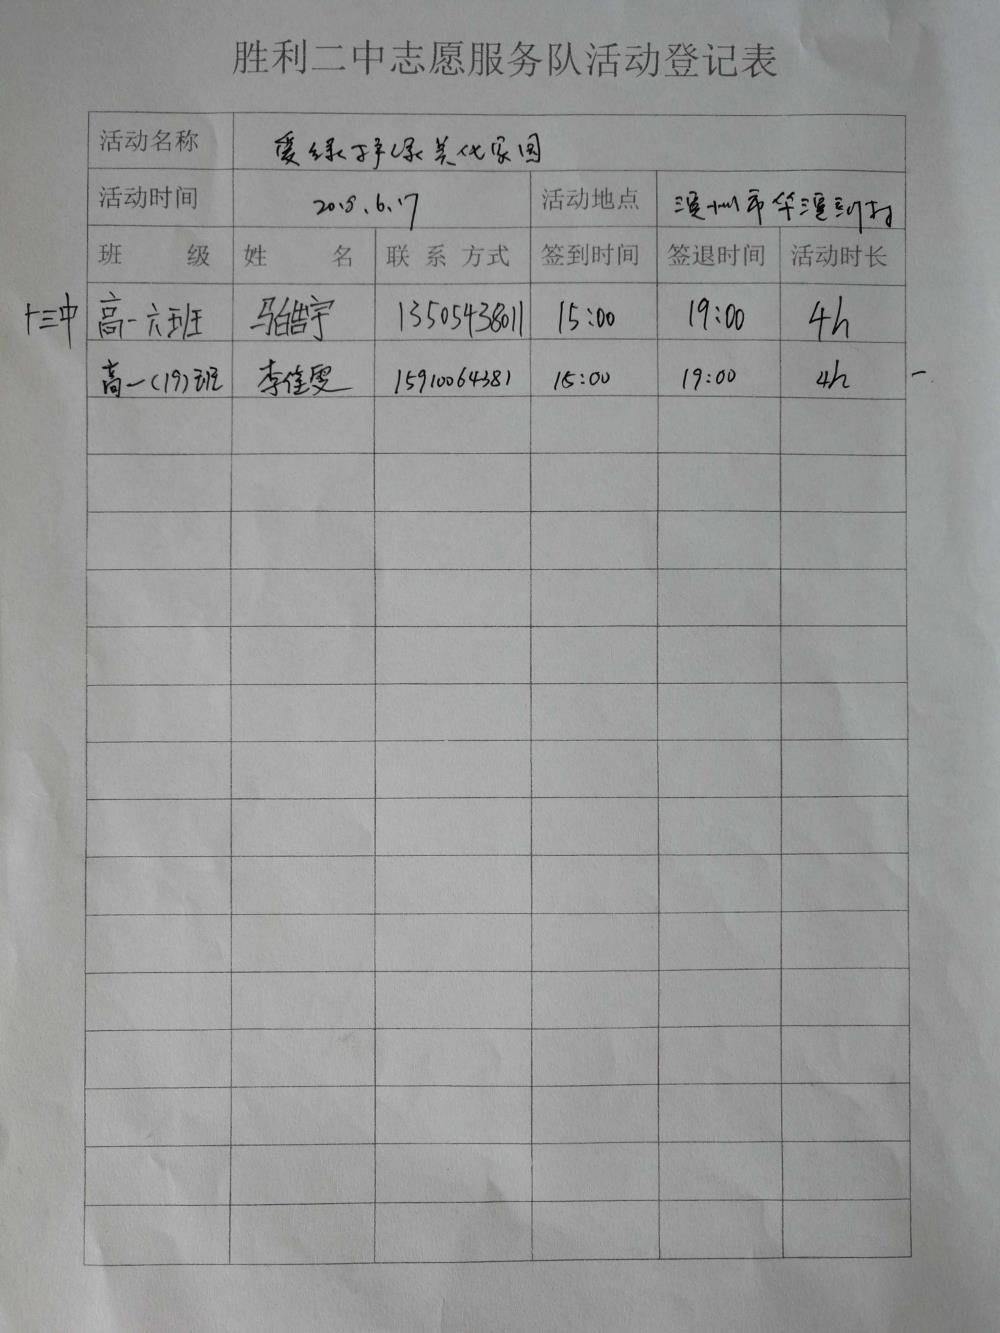 胜利二中志愿服务队活动登记表
活动名称 爱绿护绿美化家园
活动时间 2018.6.17 活动地点 滨州市华滨刘村
班 级 姓 名 联 系 方式 签到时间 签退时间 活动时长
十三中 高一六班 马皓宇 13505438011 15:00 19:00 4h
高一(19)班 李佳雯 15910064381 15:00 19:00 4h 一